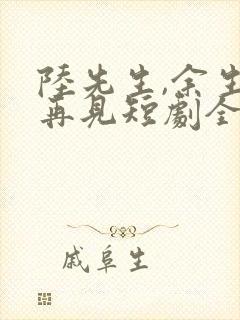 陸先生,余生
再見短劇全
戚阜生